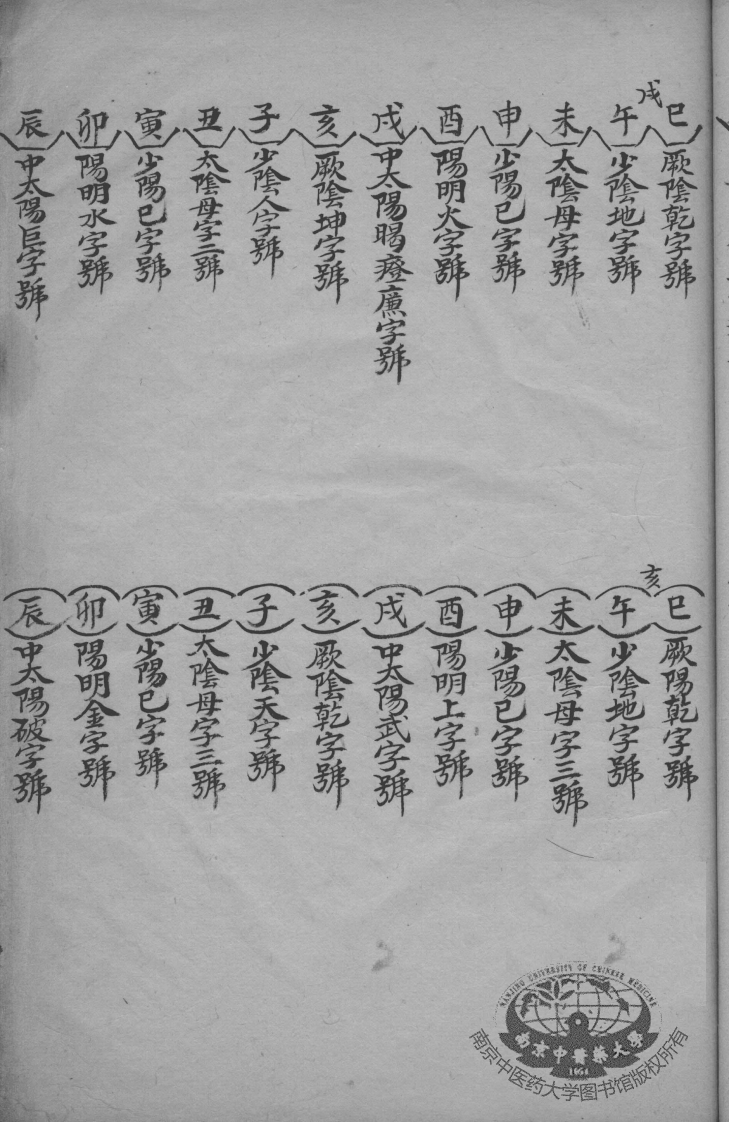 戌
巳 厥陰乾字號
午 少陰地字號
未 太陰母字號
申 少陽巳字號
酉 陽明火字號
戌 中太陽暍癈廡字號
亥 厥陰坤字號
子 少陰人字號
丑 太陰母字二號
寅 少陽巳字號
卯 陽明水字號
辰 中太陽巨字號
亥
巳 厥陽乾字號
午 少陰地字號
未 太陰母字三號
申 少陽巳字號
酉 陽明上字號
戌 中太陽武字號
亥 厥陰乾字號
子 少陰天字號
丑 太陰母字三號
寅 少陽巳字號
卯 陽明金字號
辰 中太陽破字號
NANJING UNIVERSITY OF CHINESE MEDICINE
南京中醫藥大學
1954
南京中医药大学图书馆版权所有